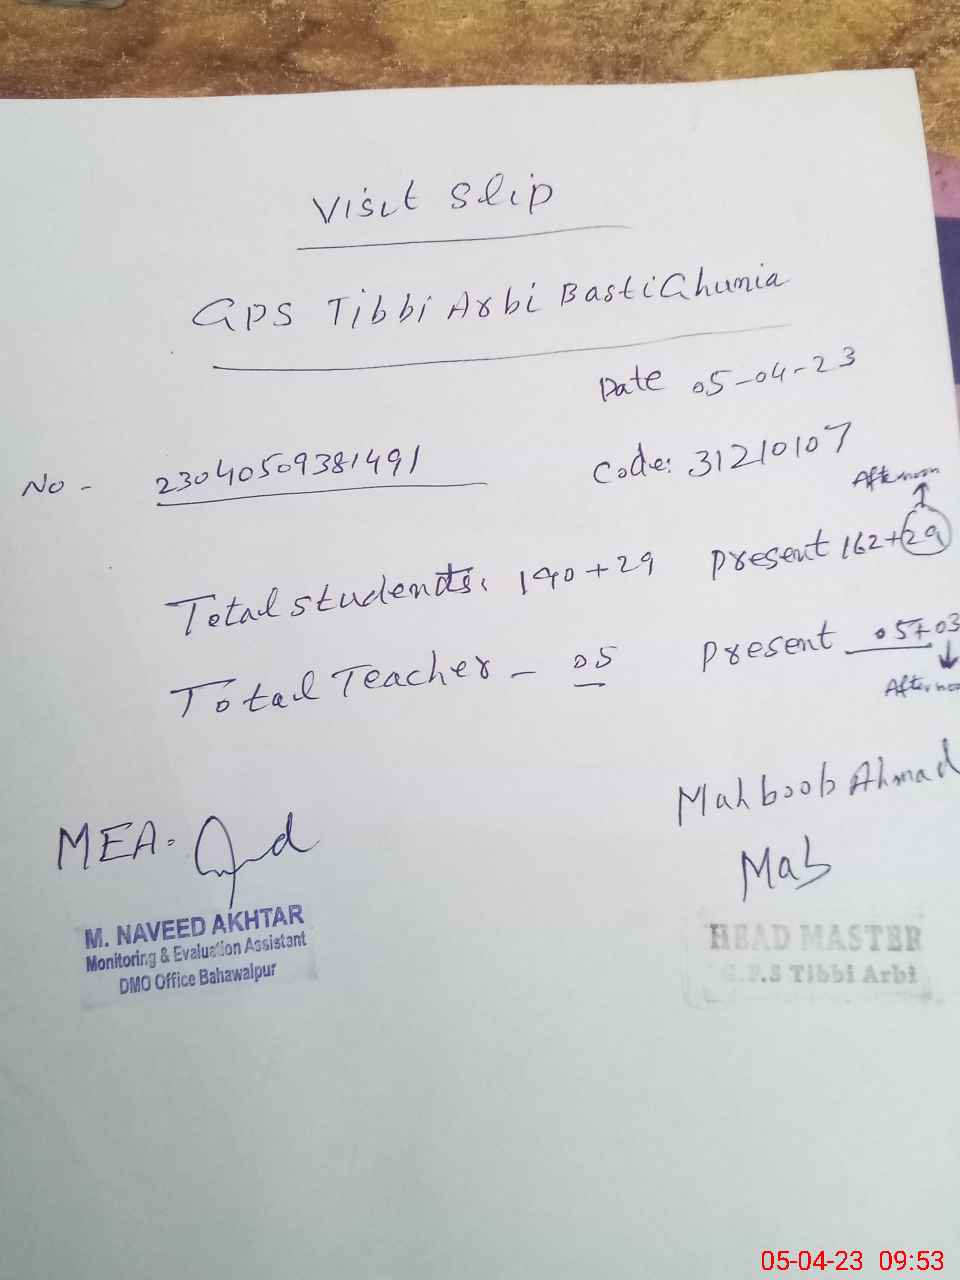 Visit Slip
GPS Tibbi Arbi Basti Ghunia
Date 05-04-23
No - 23040509381491
Code: 31210107
Afternoon
Total students. 190+29 Present 162+29
Total Teacher - 05 Present 05+03
Afternoon
Mahboob Ahmad
MEA.
Mab
M. NAVEED AKHTAR
Monitoring & Evaluation Assistant
DMO Office Bahawalpur
HEAD MASTER
G.P.S Tibbi Arbi
05-04-23 09:53